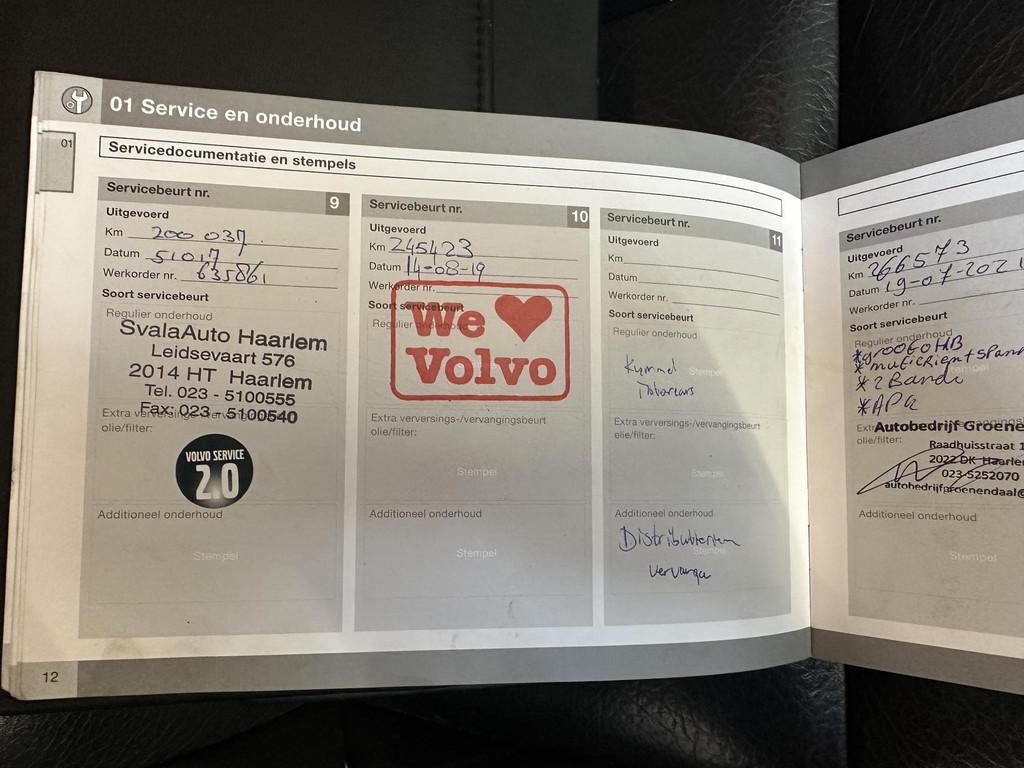 01 Service en onderhoud
01
Servicedocumentatie en stempels
Servicebeurt nr. 9
Uitgevoerd
Km 200 037
Datum 51017
Werkorder nr. 635861
Soort servicebeurt
Regulier onderhoud
SvalaAuto Haarlem
Leidsevaart 576
2014 HT Haarlem
Tel. 023 - 5100555
Fax: 023 - 5100540
Extra verversings-/vervangingsbeurt
olie/filter:
VOLVO SERVICE
2.0
Additioneel onderhoud
Stempel
12
Servicebeurt nr. 10
Uitgevoerd
Km 245423
Datum 14-08-19
Werkorder nr.
Soort servicebeurt
Regulier onderhoud
We ♥
Volvo
Extra verversings-/vervangingsbeurt
olie/filter:
Stempel
Additioneel onderhoud
Stempel
Servicebeurt nr. 11
Uitgevoerd
Km
Datum
Werkorder nr.
Soort servicebeurt
Regulier onderhoud
Stempel
Extra verversings-/vervangingsbeurt
olie/filter:
Stempel
Additioneel onderhoud
Stempel
Servicebeurt nr.
Uitgevoerd
Km 266573
Datum 19-07-2021
Werkorder nr.
Soort servicebeurt
Regulier onderhoud
*groot OHB
*2 Band
*APa
Autobedrijf Groene
olie/filter:
Raadhuisstraat 1
2022 DK Haarle
023-5252070
autobedrijfgroenendaal@
Additioneel onderhoud
Stempel